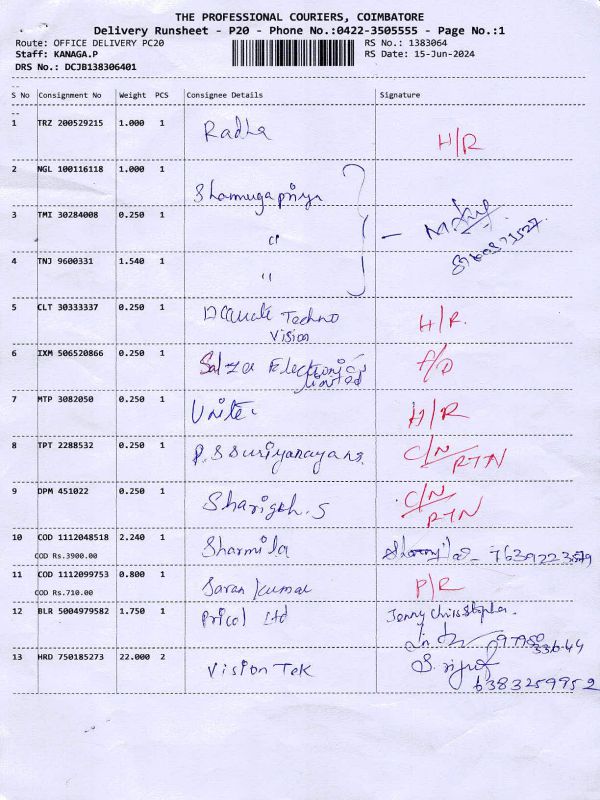 THE PROFESSIONAL COURIERS, COIMBATORE
Delivery Runsheet - P20 - Phone No.:0422-3505555 - Page No.:1
Route: OFFICE DELIVERY PC20 RS No.: 1383064
Staff: KANAGA.P RS Date: 15-Jun-2024
DRS No.: DCJB138306401
S No Consignment No Weight PCS Consignee Details Signature
1 TRZ 200529215 1.000 1 Radha H/R
2 NGL 100116118 1.000 1 Shamugapriya
3 TMI 30284008 0.250 1 "
4 TNJ 9600331 1.540 1 "
5 CLT 30333337 0.250 1 Techno H/R.
Vision
6 IXM 506520866 0.250 1 Salzer Electronics
limited
7 MTP 3082050 0.250 1 Unite H/R
8 TPT 2288532 0.250 1 C/N
RTN
9 DPM 451022 0.250 1 Sharigsh.S C/N
RTN
10 COD 1112048518 2.240 1 Sharmila
COD Rs.3900.00
11 COD 1112099753 0.800 1 Saran kumar P/R
COD Rs.710.00
12 BLR 5004979582 1.750 1 Pricol Ltd
13 HRD 750185273 22.000 2 Vision Tek
6383259952